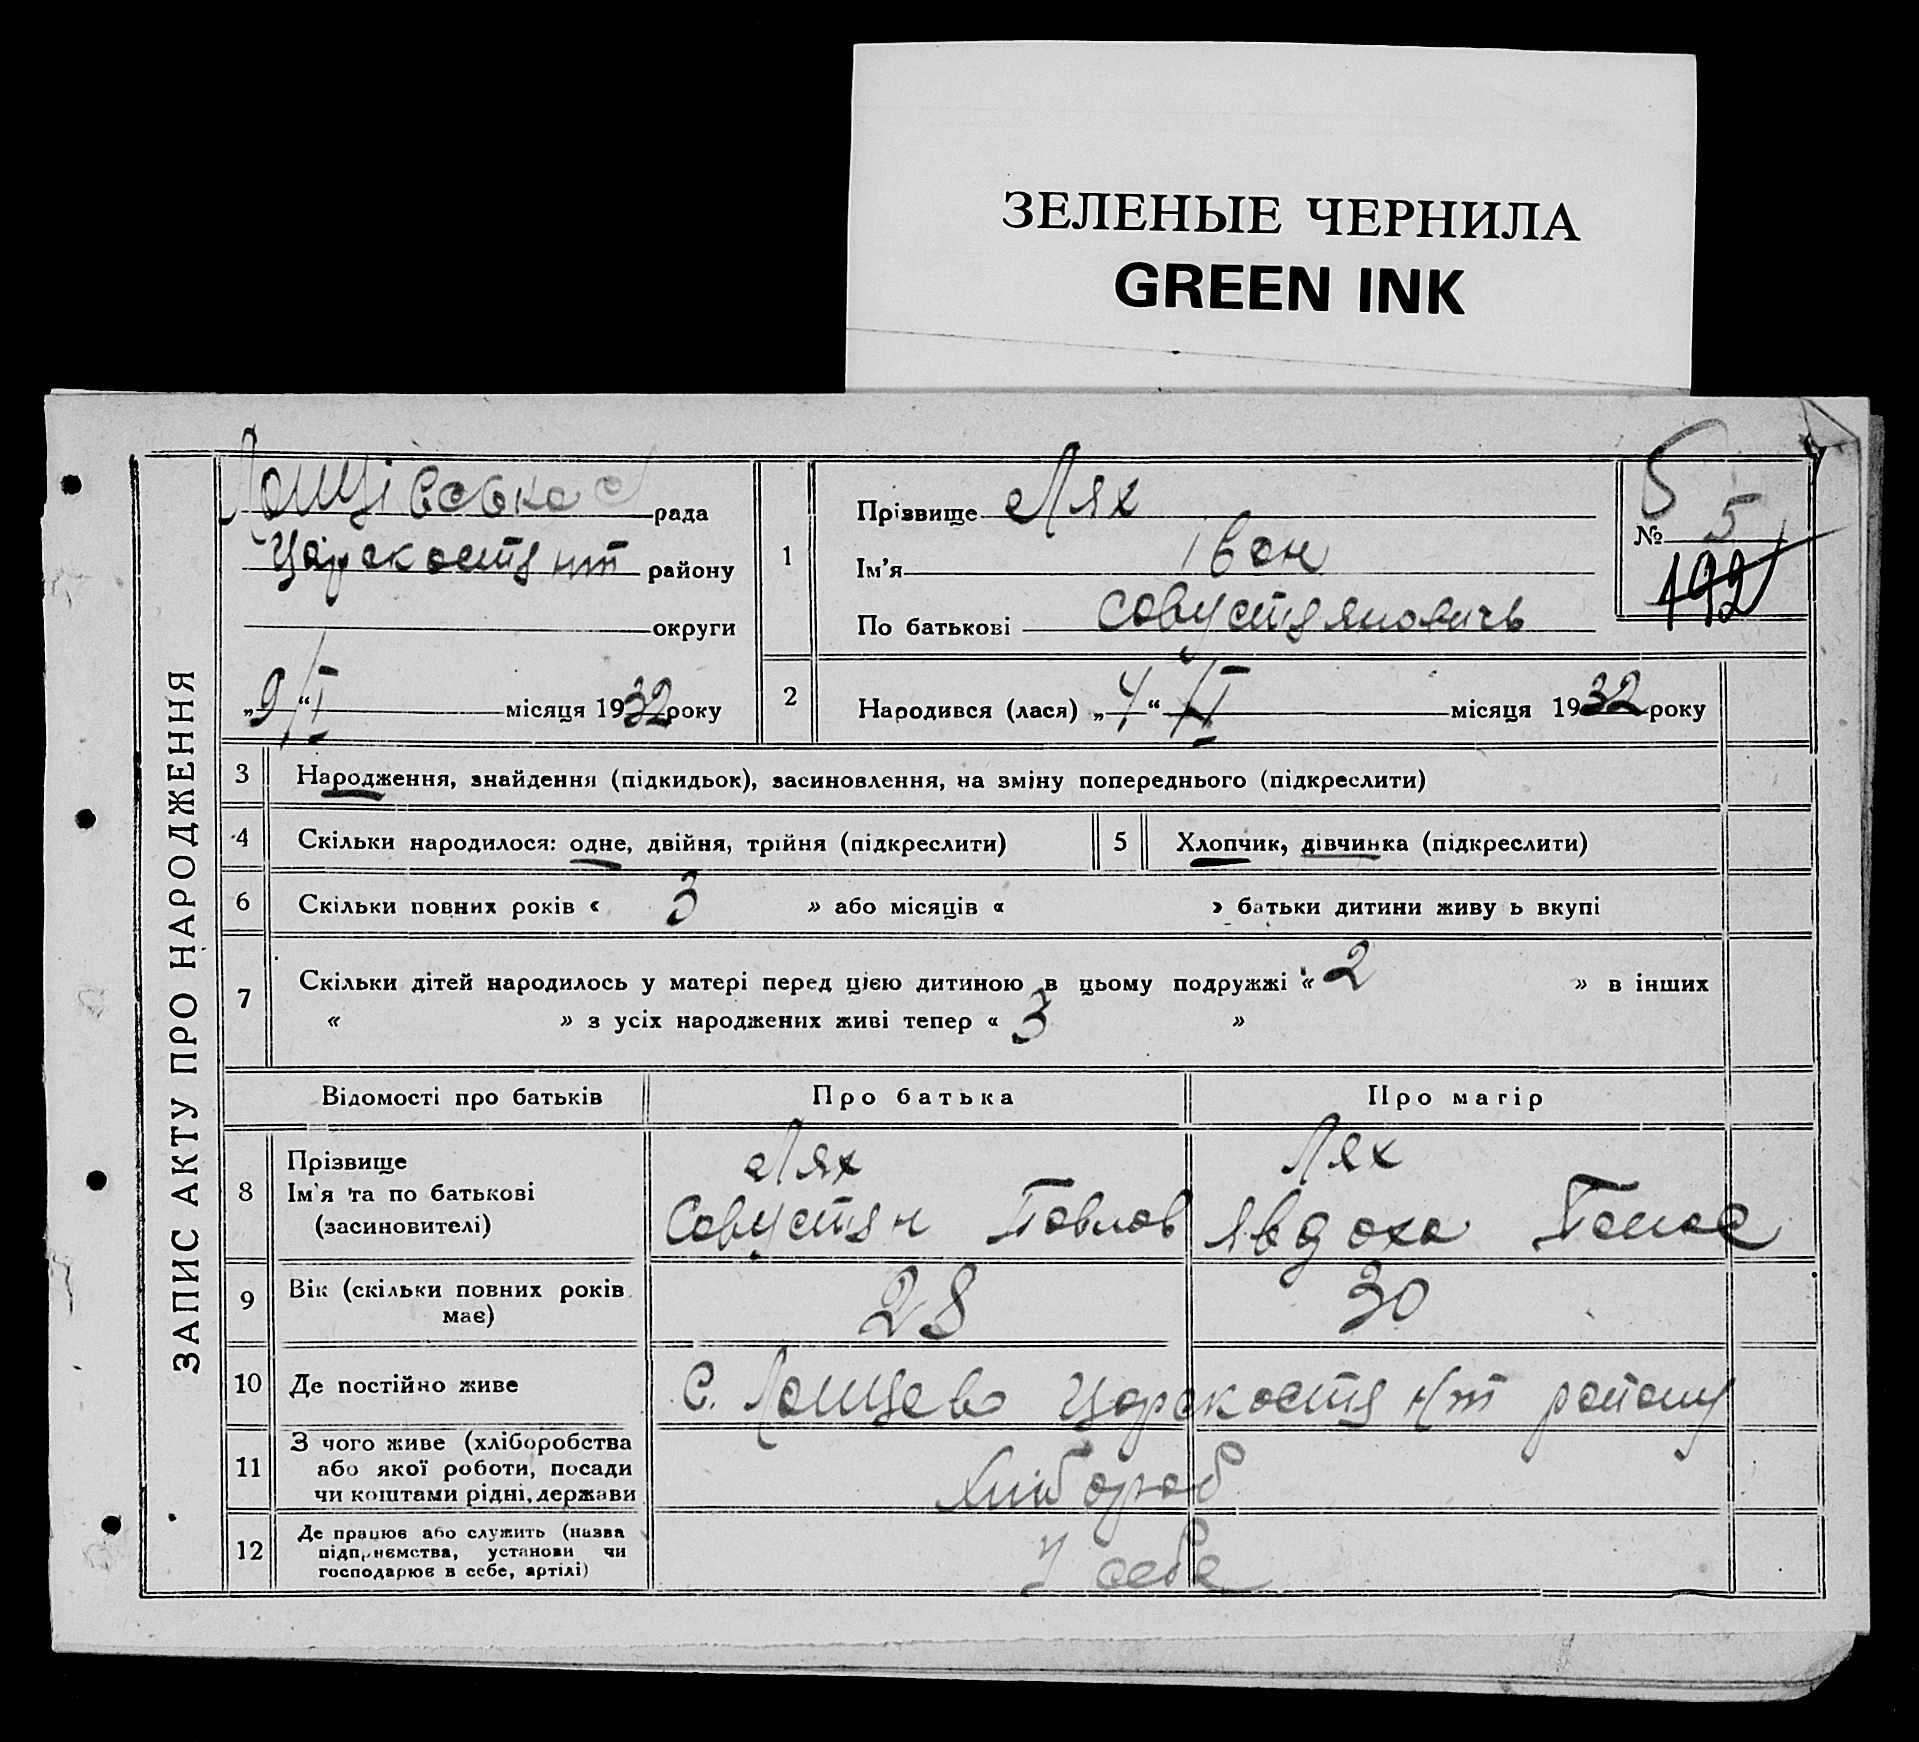 ЗЕЛЕНЫЕ ЧЕРНИЛА
GREEN INK
ЗАПИС АКТУ ПРО НАРОДЖЕННЯ
Лощівська с рада
району
округи
„9“ І місяця 1932 року
1
Прізвище Лях
Ім'я Іван
По батькові Савустяновичь
№ 5
5
192
2
Народився (лася) „4“ І місяця 1932 року
3 Народження, знайдення (підкидьок), засиновлення, на зміну попереднього (підкреслити)
4 Скільки народилося: одне, двійня, трійня (підкреслити) 5 Хлопчик, дівчинка (підкреслити)
6 Скільки повних років « 3 » або місяців « » батьки дитини живу ь вкупі
7 Скільки дітей народилось у матері перед цією дитиною в цьому подружжі « 2 » в інших
« » з усіх народжених живі тепер « 3 »
Відомості про батьків Про батька Про матір
8 Прізвище Лях Лях
Ім'я та по батькові Савустян Павлов Явдоха
(засиновителі)
9 Вік (скільки повних років має) 28 30
10 Де постійно живе С. Лащева району
11 З чого живе (хліборобства або якої роботи, посади чи коштами рідні, держави Хлібороб
12 Де працює або служить (назва підприємства, установи чи господарює в себе, артілі) У себе